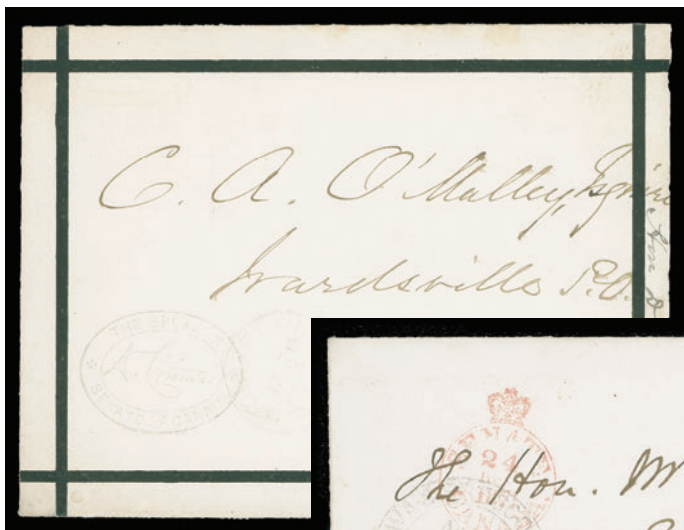 C. A. O'Malley, Esquire
Wardsville P.O.
THE SPEAKER
SENATE CANADA
SENATE
24
The Hon. M